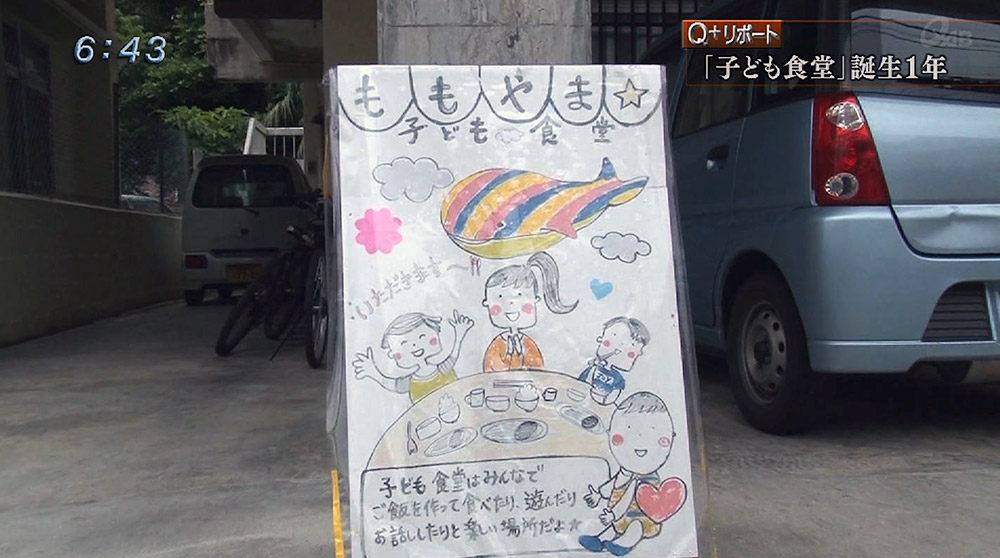 6:43
Q+リポート
「子ども食堂」誕生1年
QAB
ももやま☆
子ども食堂
いただきます〜
子ども食堂はみんなで
ご飯を作って食べたり、遊んだり
お話ししたりと楽しい場所だよ☆